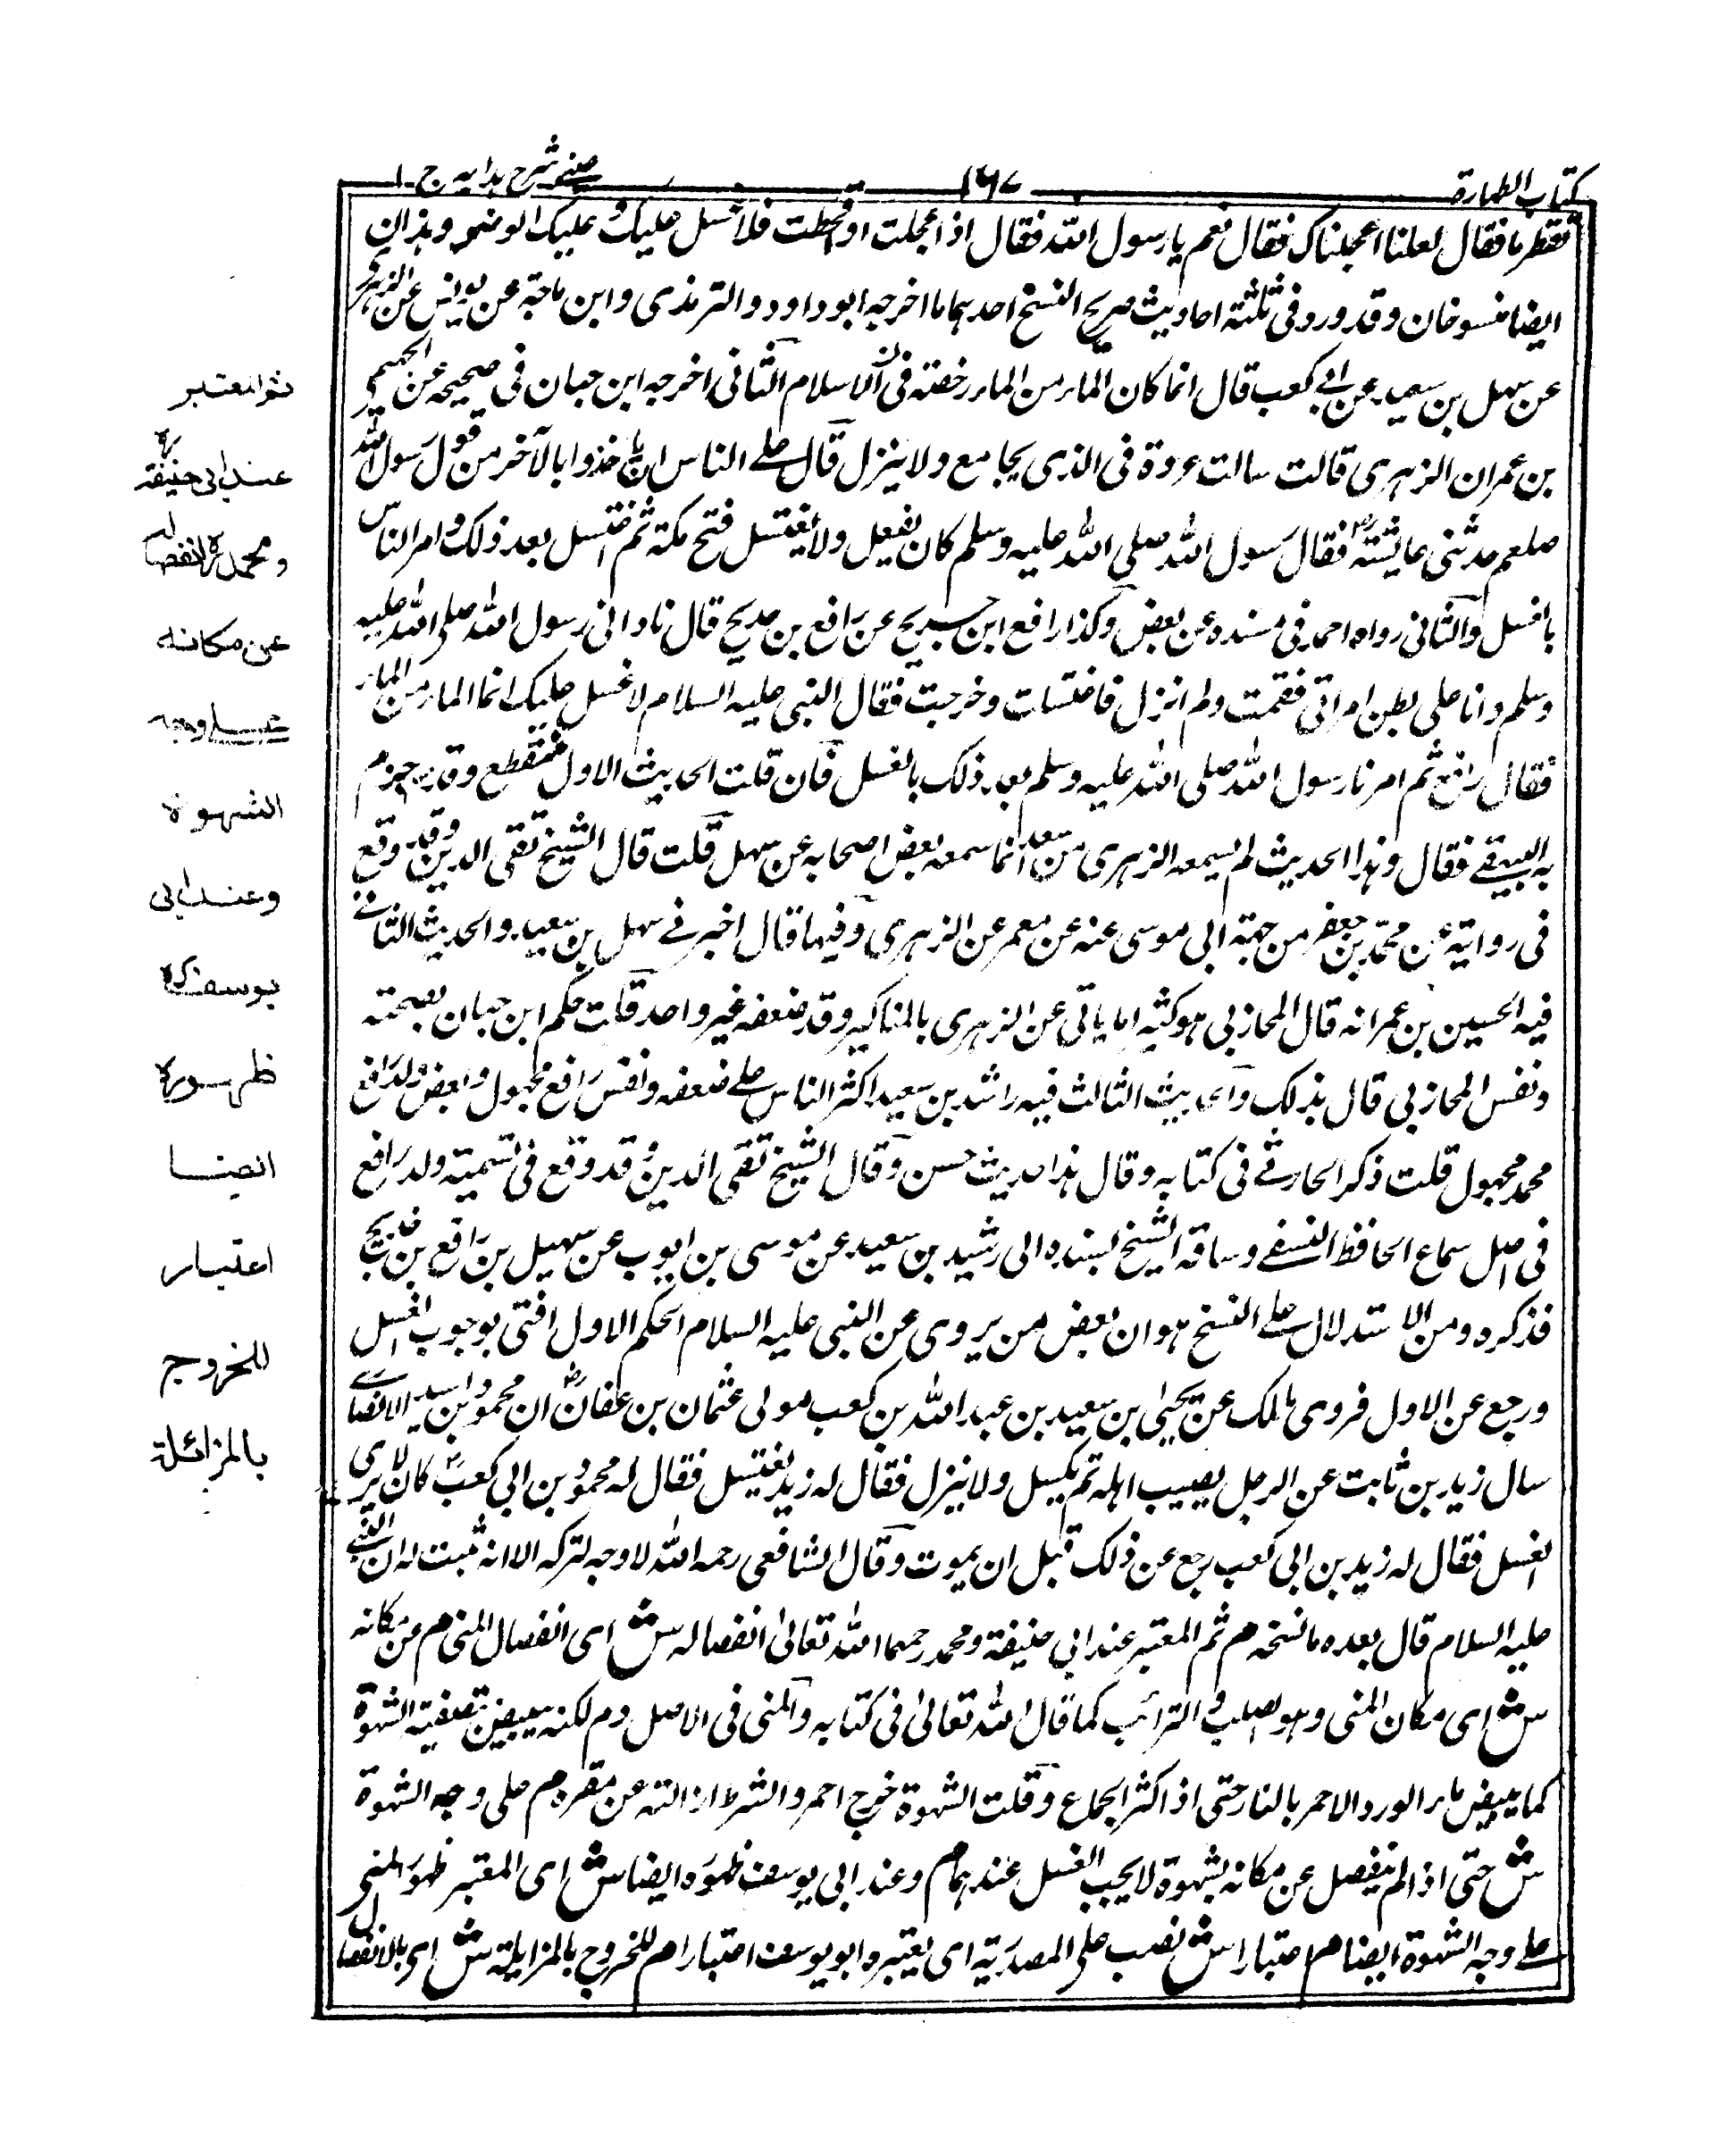 كتاب الطهارة
١٦٧
عينى شرح هدايه ج ١
تقطر ما فقال لعلنا اعجلناك فقال نعم يا رسول الله فقال اذا اعجلت او قحطت فلا غسل عليك و عليك الوضوء وهذان
ايضا منسوخان وقد ورد فى ثلثة احاديث صريح النسخ احدهما ما اخرجه ابو داود والترمذى وابن ماجة عن يونس عن الزهرى
عن سهل بن سعيد عن ابي كعب قال انما كان الماء من الماء رخصة فى اول الاسلام الثانى اخرجه ابن حبان فى صحيحه عن الحسين
بن عمران الزهرى قالت سالت عروة فى الذى يجامع ولا ينزل قال على الناس ان ياخذوا بالآخر من قول رسول الله
صلعم حدثنى عايشة فقال رسول الله صلى الله عليه وسلم كان يفعل ولا يغتسل فتح مكة ثم اغتسل بعد ذلك وامر الناس
بالغسل والثانى رواه احمد فى مسنده عن بعض وكذا رافع ابن خديج عن رافع بن خديج قال نادانى رسول الله صلى الله عليه
وسلم وانا على بطن امراتى فقمت ولم انزل فاغتسلت وخرجت فقال النبى عليه السلام لا غسل عليك انما الماء من الماء
فقال رافع ثم امرنا رسول الله صلى الله عليه وسلم بعد ذلك بالغسل فان قلت الحديث الاول منقطع وقد جزم
به البيهقى فقال وهذا الحديث لم يسمعه الزهرى من سعد انما سمعه بعض اصحابه عن سهل قلت قال الشيخ تقى الدين وقد وقع
فى رواية عن محمد بن جعفر من جهة ابى موسى عنه عن معمر عن الزهرى وفيها قال اخبرنى سهل بن سعيد والحديث الثانى
فيه الحسين بن عمرانه قال المحازبى هو كثيرا ما ياتى عن الزهرى بالمناكير وقد ضعفه غير واحد قلت حكم ابن حبان بصحته
ونفس المحازبى قال بذلك والحديث الثالث فيه راشد بن سعيد اكثر الناس على ضعفه ونفس رافع مجهول وبعض ولد رافع
محمد مجهول قلت ذكر الحارثى فى كتابه وقال هذا حديث حسن وقال الشيخ تقى الدين وقد وقع فى تسمية ولد رافع
فى اصل سماع الحافظ النسفى وساقه الشيخ بسنده الى رشيد بن سعيد عن موسى بن ايوب عن سهيل بن رافع بن خديج
فذكره ومن الاستدلال على النسخ هو ان بعض من يروى عن النبى عليه السلام الحكم الاول افتى بوجوب الغسل
ورجع عن الاول فروى مالك عن يحيى بن سعيد بن عبد الله بن كعب مولى عثمان بن عفان ان محمود بن اسيد الانصارى
سال زيد بن ثابت عن الرجل يصيب اهله ثم يكسل ولا ينزل فقال له زيد يغتسل فقال له محمود بن ابى كعب كان لا يرى
الغسل فقال له زيد بن ابى كعب رجع عن ذلك قبل ان يموت وقال الشافعى رحمه الله لا وجه لتركه الا انه ثبت له ان النبى
عليه السلام قال بعده ما نسخه م ثم المعتبر عند ابى حنيفة ومحمد رحمهما الله تعالى انفصاله ش اى انفصال المنى م عن مكانه
ش اى مكان المنى وهو الصلب والترائب كما قال الله تعالى فى كتابه والمنى فى الاصل دم لكنه يبيض تصفية الشهوة
كما يبيض ماء الورد الاحمر بالنار حتى اذا اكثر الجماع وقلت الشهوة خرج احمر والشرط ازالته عن مقره م على وجه الشهوة
ش حتى اذا لم ينفصل عن مكانه بشهوة لا يجب الغسل عندهما م وعند ابى يوسف ظهوره ايضا ش اى المعتبر ظهور المنى
على وجه الشهوة ايضا م اعتبارا ش نصب على المصدرية اى يعتبره ابو يوسف اعتبارا م للخروج بالمزايلة ش اى بالانفصال
ثم المعتبر
عند ابى حنيفة
ومحمد انفصاله
عن مكانه
على وجه
الشهوة
وعند ابى
يوسف
ظهوره
ايضا
اعتبار
للخروج
بالمزائلة